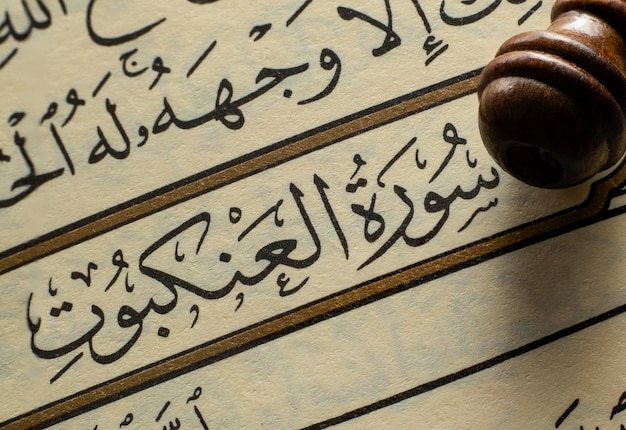 إِلَّا وَجْهَهُۥ لَهُ ٱلْحُ
سُورَةُ العَنكَبُوتِ